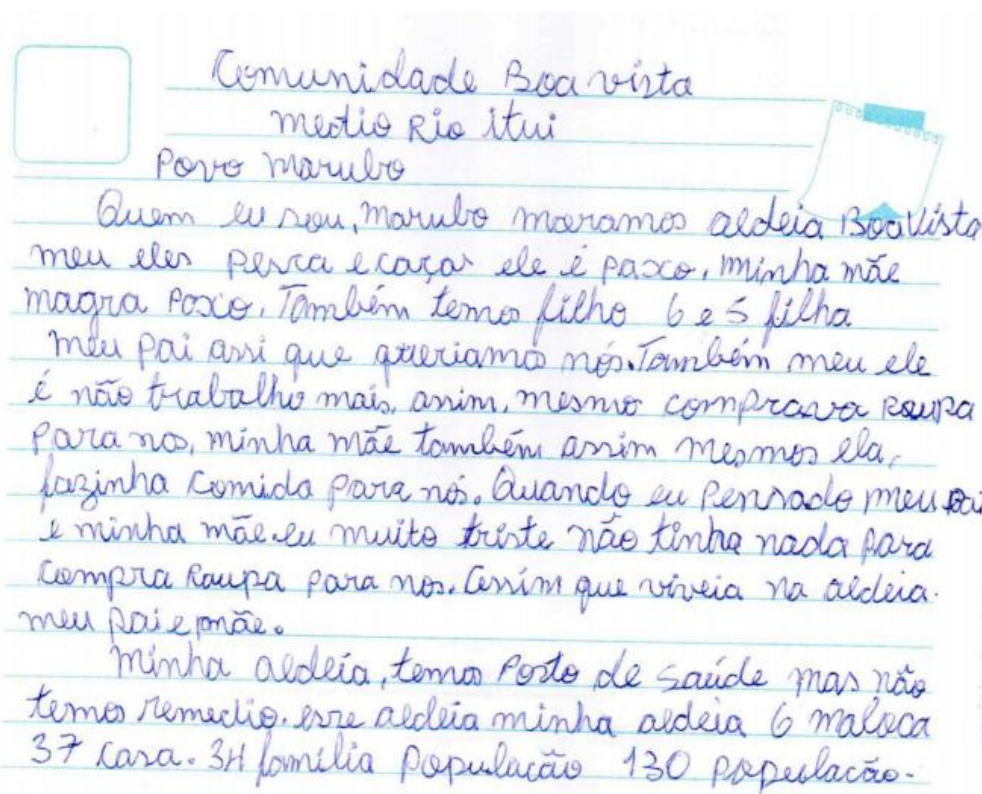 Comunidade Boa vista
medio Rio itui
Povo marubo
Quem eu sou, marubo moramos aldeia Boa Vista
meu eles pesca e caçar ele é paxo, minha mãe
magra Poxo. Também temos filho 6 e 5 filha
meu pai assi que queriamos nós. Também meu ele
é não trabalho mais, assim, mesmo comprava Roupa
para nos, minha mãe também assim mesmos ela,
fazinha comida para nós. Quando eu Pensado meu pai
e minha mãe eu muito triste não tinha nada para
compra Roupa para nos. Assim que viveia na aldeia.
meu pai e mãe.
minha aldeia, temos Posto de Saúde mas não
temos remedio. esse aldeia minha aldeia 6 maloca
37 casa. 34 família População 130 população.